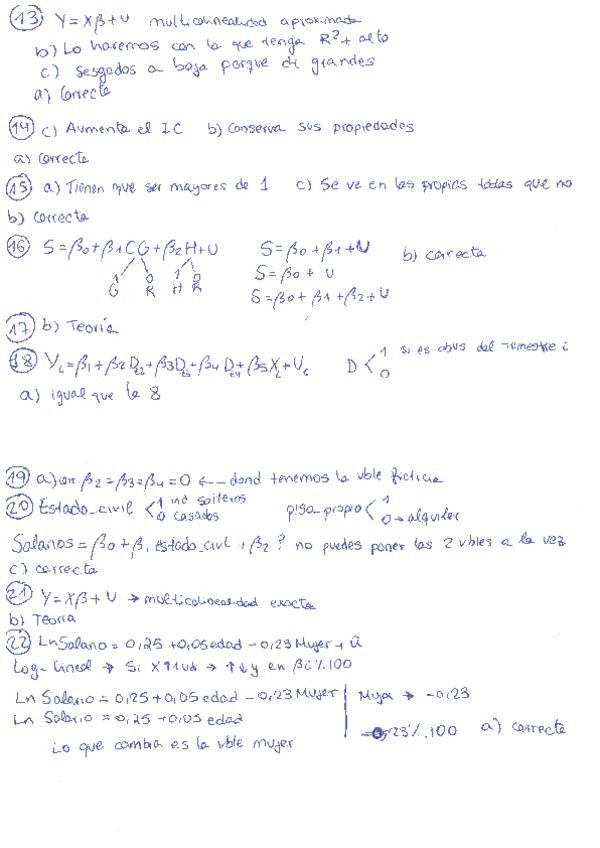 13 Y = Xβ + U multicolinealidad aproximada
b) Lo haremos con la que tenga R² + alto
c) Sesgados a baja porque di grandes
a) Correcta
14 c) Aumenta el IC b) Conserva sus propiedades
a) Correcta
15 a) Tienen que ser mayores de 1 c) Se ve en las propias todas que no
b) Correcta
16 S = β0 + β1 CG + β2 H + U S = β0 + β1 + U b) correcta
1 0 1 0 S = β0 + U
G R H R S = β0 + β1 + β2 + U
17 b) Teoría
18 Yi = β1 + β2 D + β3 D + β4 D + β5 Xi + Ui D < 1 si es obvs del trimestre i
0
a) igual que la 8
19 a) β2 = β3 = β4 = 0 ← dond tenemos la vble ficticia
20 Estado_civil < 1 solteros piso propio < 1
0 casados 0 → alquiler
Salarios = β0 + β1 Estado_civil + β2 ? no puedes poner las 2 vbles a la vez
c) correcta
21 Y = Xβ + U → multicolinealidad exacta
b) Teoría
22 Ln Salario = 0,25 + 0,05 edad - 0,23 Mujer + û
Log-Lineal → Si X ↑ 1 ud → ↑↓ y en βi % 100
Ln Salario = 0,25 + 0,05 edad - 0,23 Mujer Mujer → -0,23
Ln Salario = 0,25 + 0,05 edad -0,23 % . 100 a) correcta
Lo que cambia es la vble mujer